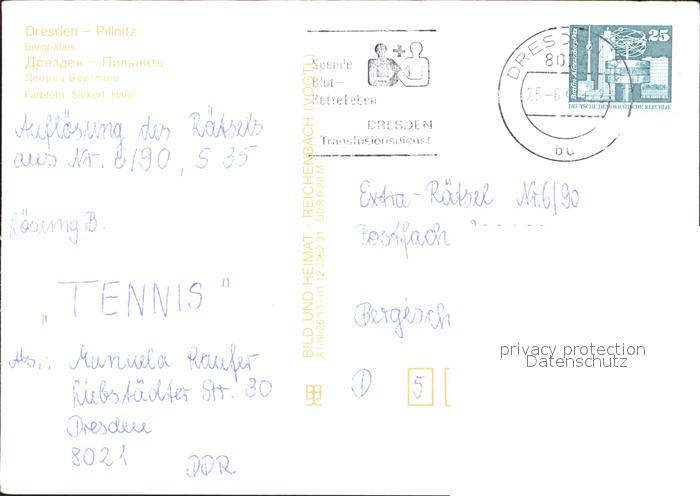 Dresden – Pillnitz
Bergpalais
Дрезден – Пильнитц
Дворец Бергпале
Farbfoto: Sickert, Halle
Auflösung des Rätsels
aus Nr. 6/90, S 35
Lösung B.
"TENNIS"
Abs.: Manuela Laufer
Liebstädter Str. 30
Dresden
8021 DDR
BILD UND HEIMAT · REICHENBACH (VOGTL)
A1/III/26/13 01 12 0282/31 DDR 0,20 M
Spende
Blut–
Rette Leben
DRESDEN
Transfusionsdienst
DRESDEN
80
25–6
bc
Berlin Alexanderplatz
25
DEUTSCHE DEMOKRATISCHE REPUBLIK
Extra-Rätsel Nr. 6/90
Postfach
Bergisch
D 5
privacy protection
Datenschutz